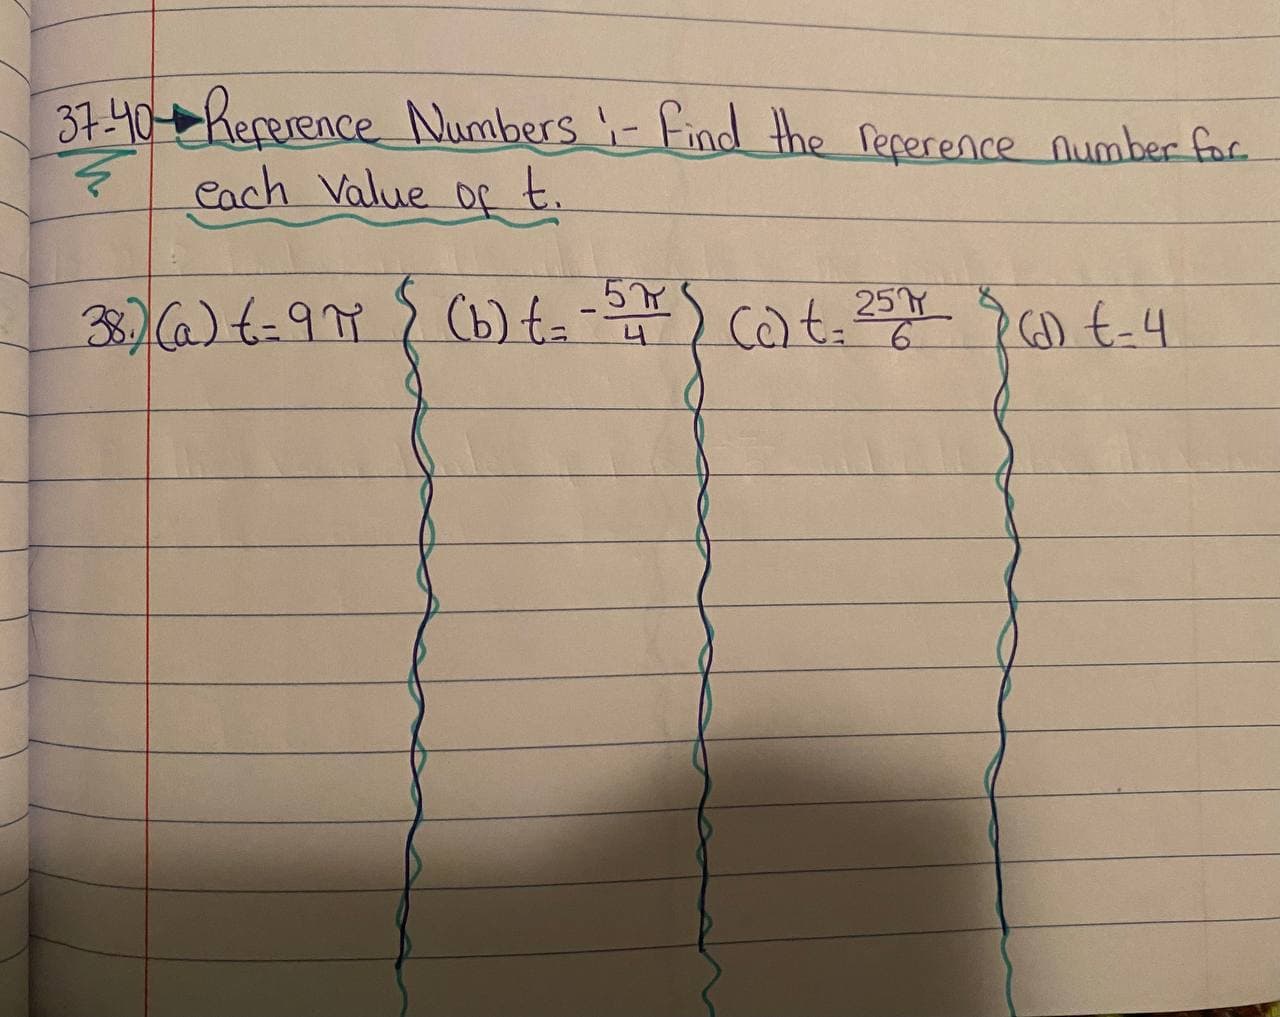 37-40→Reference Numbers :- Find the reference number for
each Value of t.
38.) (a) t=9π (b) t= -5π/4 (c) t= 25π/6 (d) t=4